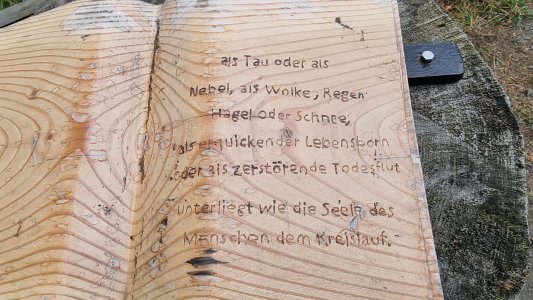 als Tau oder als
Nebel, als Wolke, Regen
Hagel oder Schnee,
als erquickender Lebensborn
oder als zerstörende Todesflut
unterliegt wie die Seele des
Menschen dem Kreislauf.